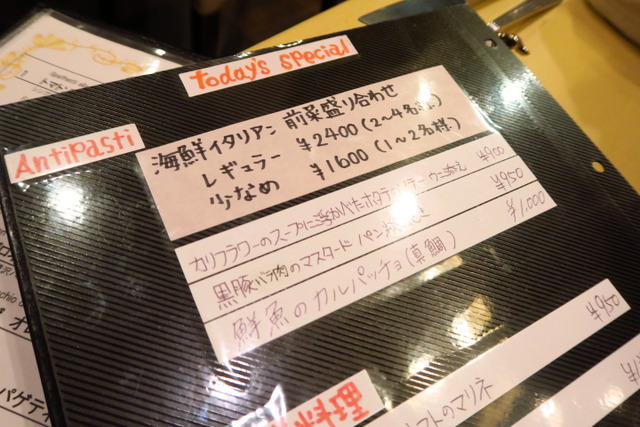 Today's Special
Antipasti
海鮮イタリアン 前菜盛り合わせ
レギュラー ¥2400 (2~4名様)
少なめ ¥1600 (1~2名様)
カリフラワーのスープに浮かべたホタテ ウニ添え ¥900
黒豚バラ肉のマスタードパン ¥950
鮮魚のカルパッチョ(真鯛) ¥1,000
料理
¥950
トマトのマリネ
トマト
パゲティ